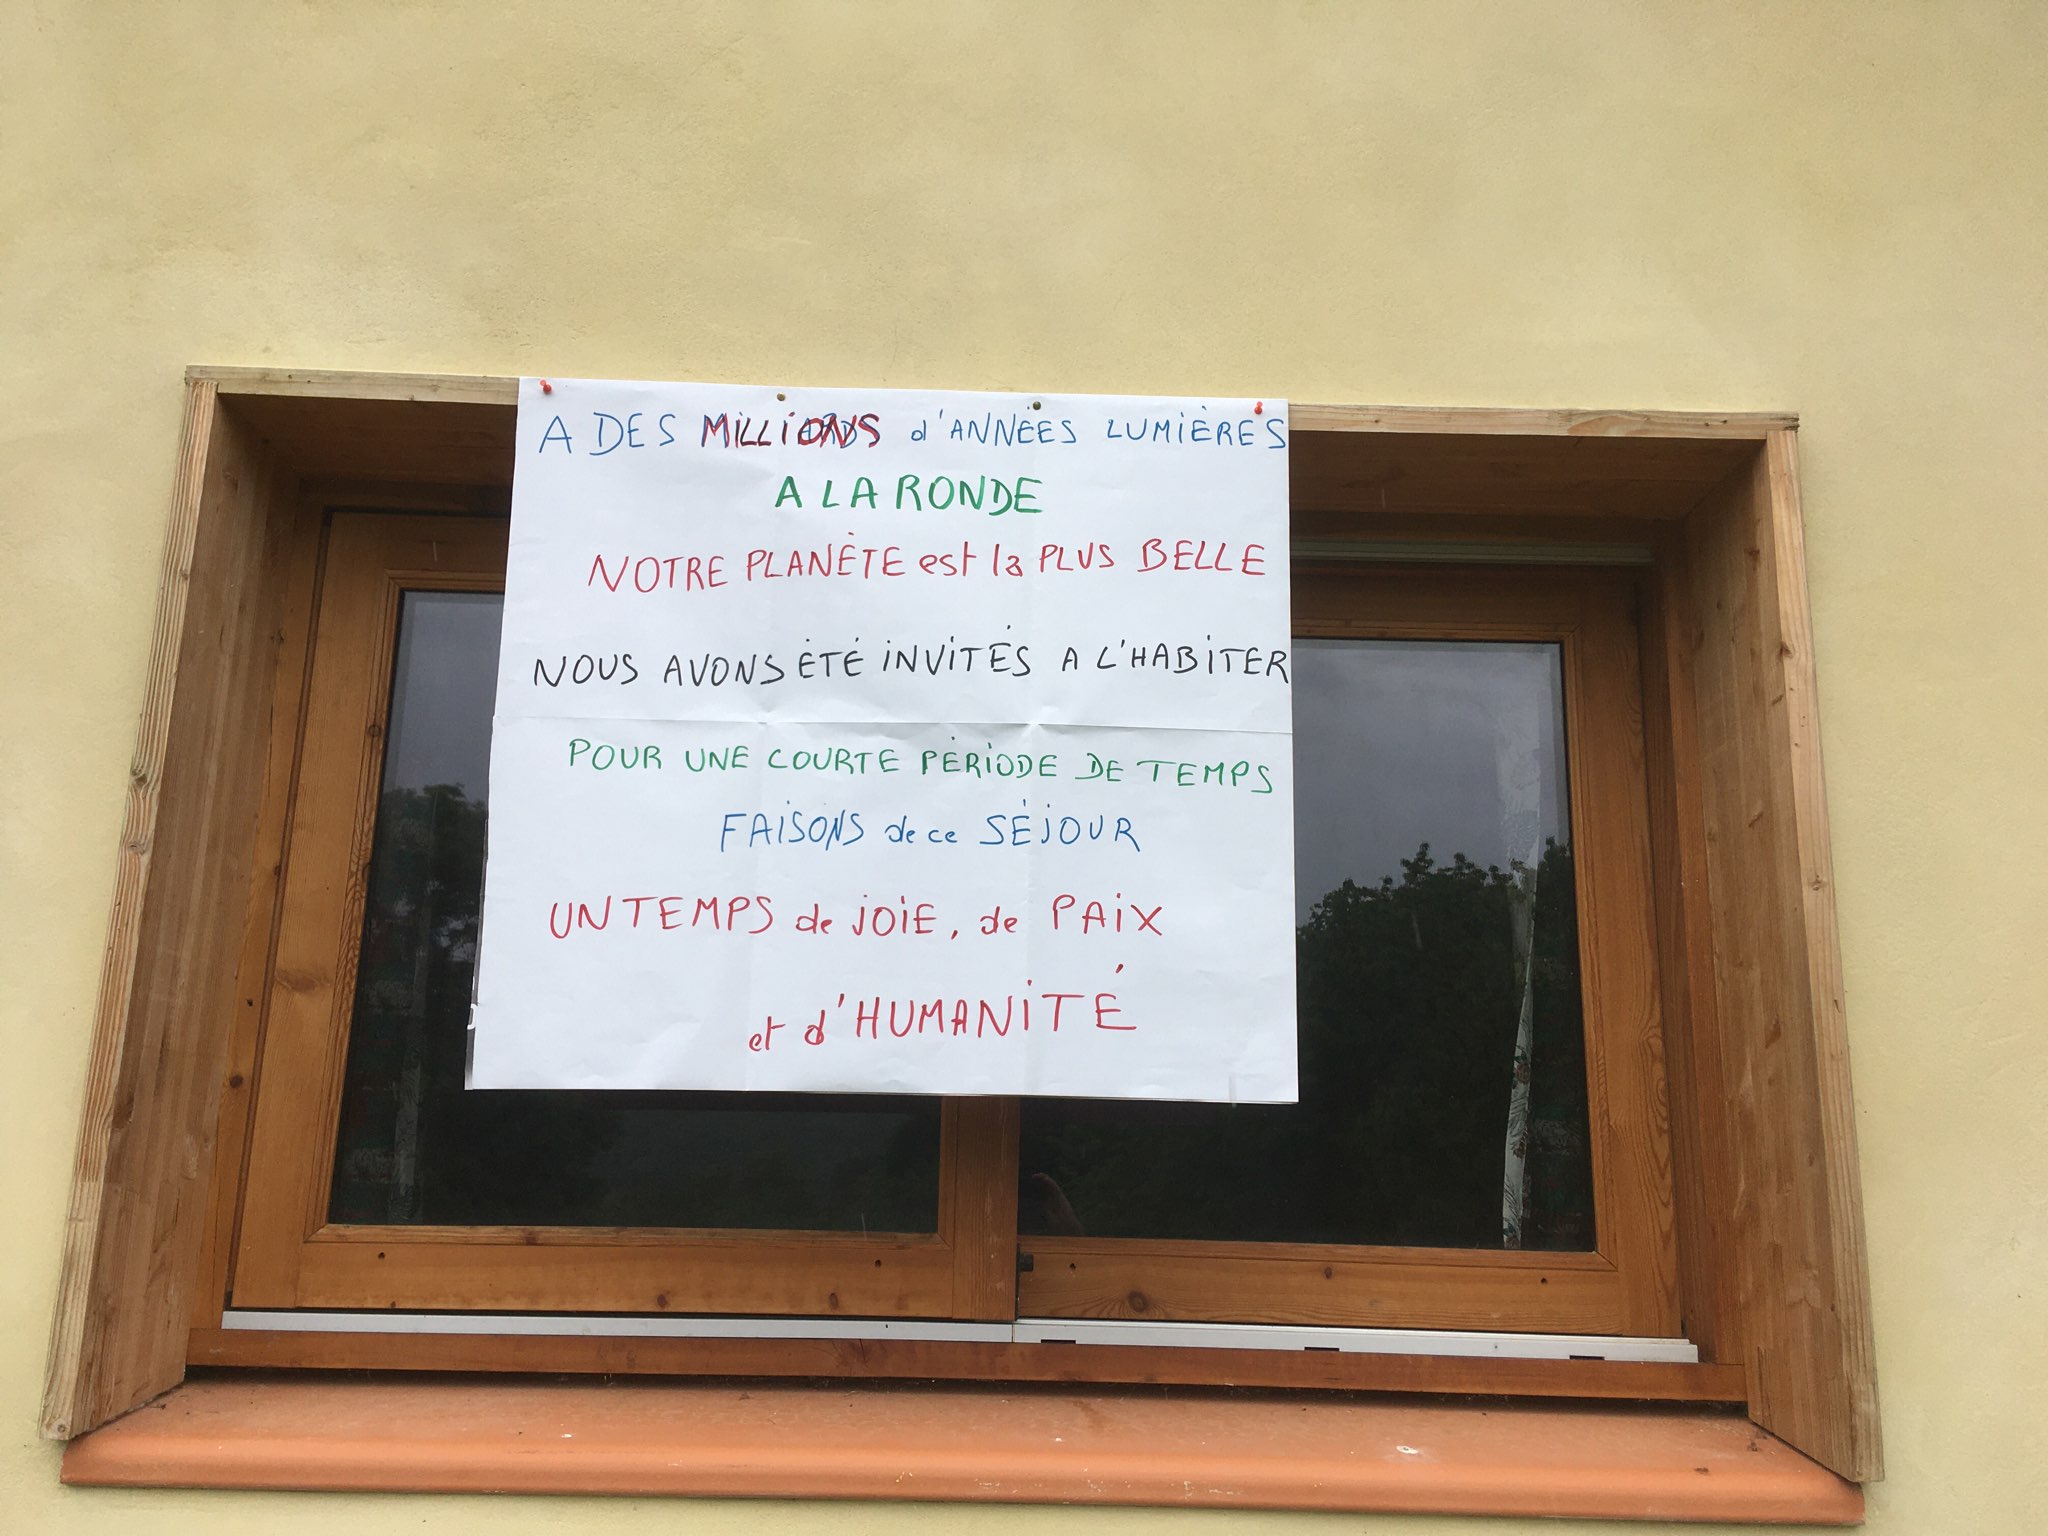 A DES MILLIONS d'ANNÉES LUMIÈRES
A LA RONDE
NOTRE PLANÈTE est la PLUS BELLE
NOUS AVONS ÉTÉ iNViTÉS A L'HABiTER
POUR UNE COURTE PÉRiODE DE TEMPS
FAiSONS de ce SÉJOUR
UN TEMPS de JOiE, de PAiX
et d'HUMANiTÉ